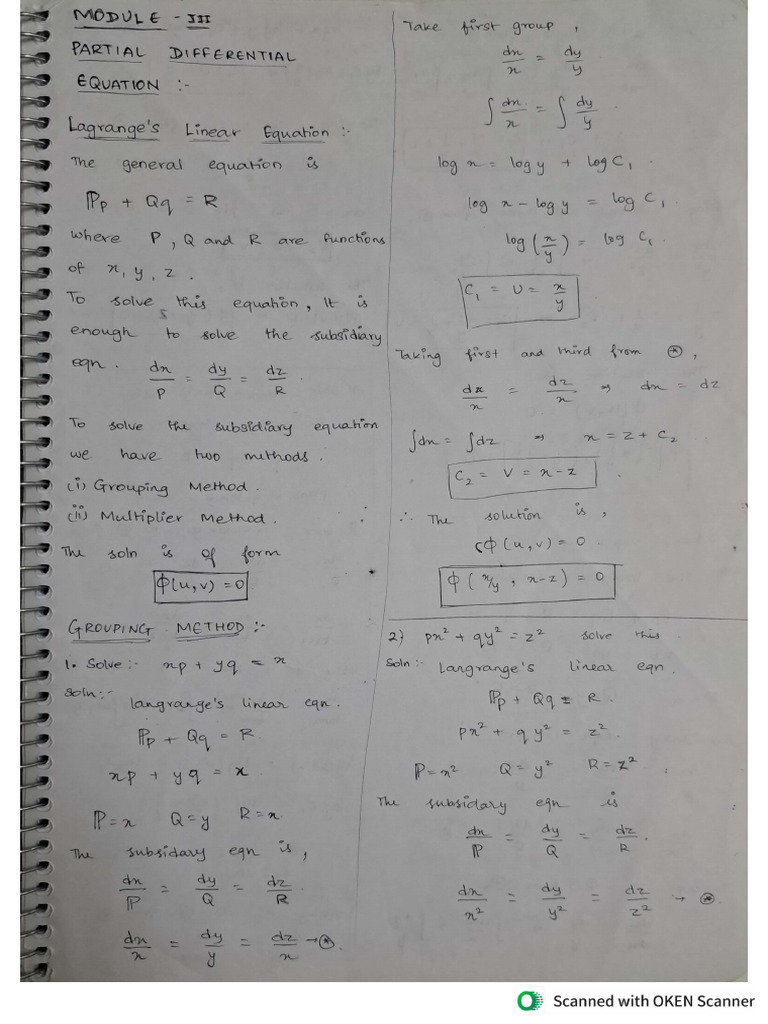 MODULE - III
PARTIAL DIFFERENTIAL
EQUATION :-
Lagrange's Linear Equation :-
The general equation is
Pp + Qq = R
where P, Q and R are functions
of x, y, z.
To solve this equation, It is
enough to solve the subsidiary
eqn. dx/P = dy/Q = dz/R.
To solve the subsidiary equation
we have two methods.
(i) Grouping Method.
(ii) Multiplier Method.
The soln is of form
Φ(u, v) = 0
GROUPING METHOD :-
1. Solve :- xp + yq = x
Soln :-
langrange's linear eqn.
Pp + Qq = R
xp + yq = x
P = x Q = y R = x
The subsidary eqn is,
dx/P = dy/Q = dz/R
dx/x = dy/y = dz/x → ⊛.
Take first group,
dx/x = dy/y
∫ dx/x = ∫ dy/y
log x = log y + log C₁.
log x - log y = log C₁
log (x/y) = log C₁
C₁ = U = x/y
Taking first and third from ⊛,
dx/x = dz/x ⇒ dx = dz
∫dx = ∫dz ⇒ x = z + C₂
C₂ = V = x - z
∴ The solution is,
Φ(u, v) = 0
Φ(x/y, x-z) = 0
2) px² + qy² = z² solve this
Soln :- Langrange's linear eqn.
Pp + Qq = R.
px² + qy² = z².
P = x² Q = y² R = z²
The subsidary eqn is
dx/P = dy/Q = dz/R.
dx/x² = dy/y² = dz/z² → ⊛
Scanned with OKEN Scanner